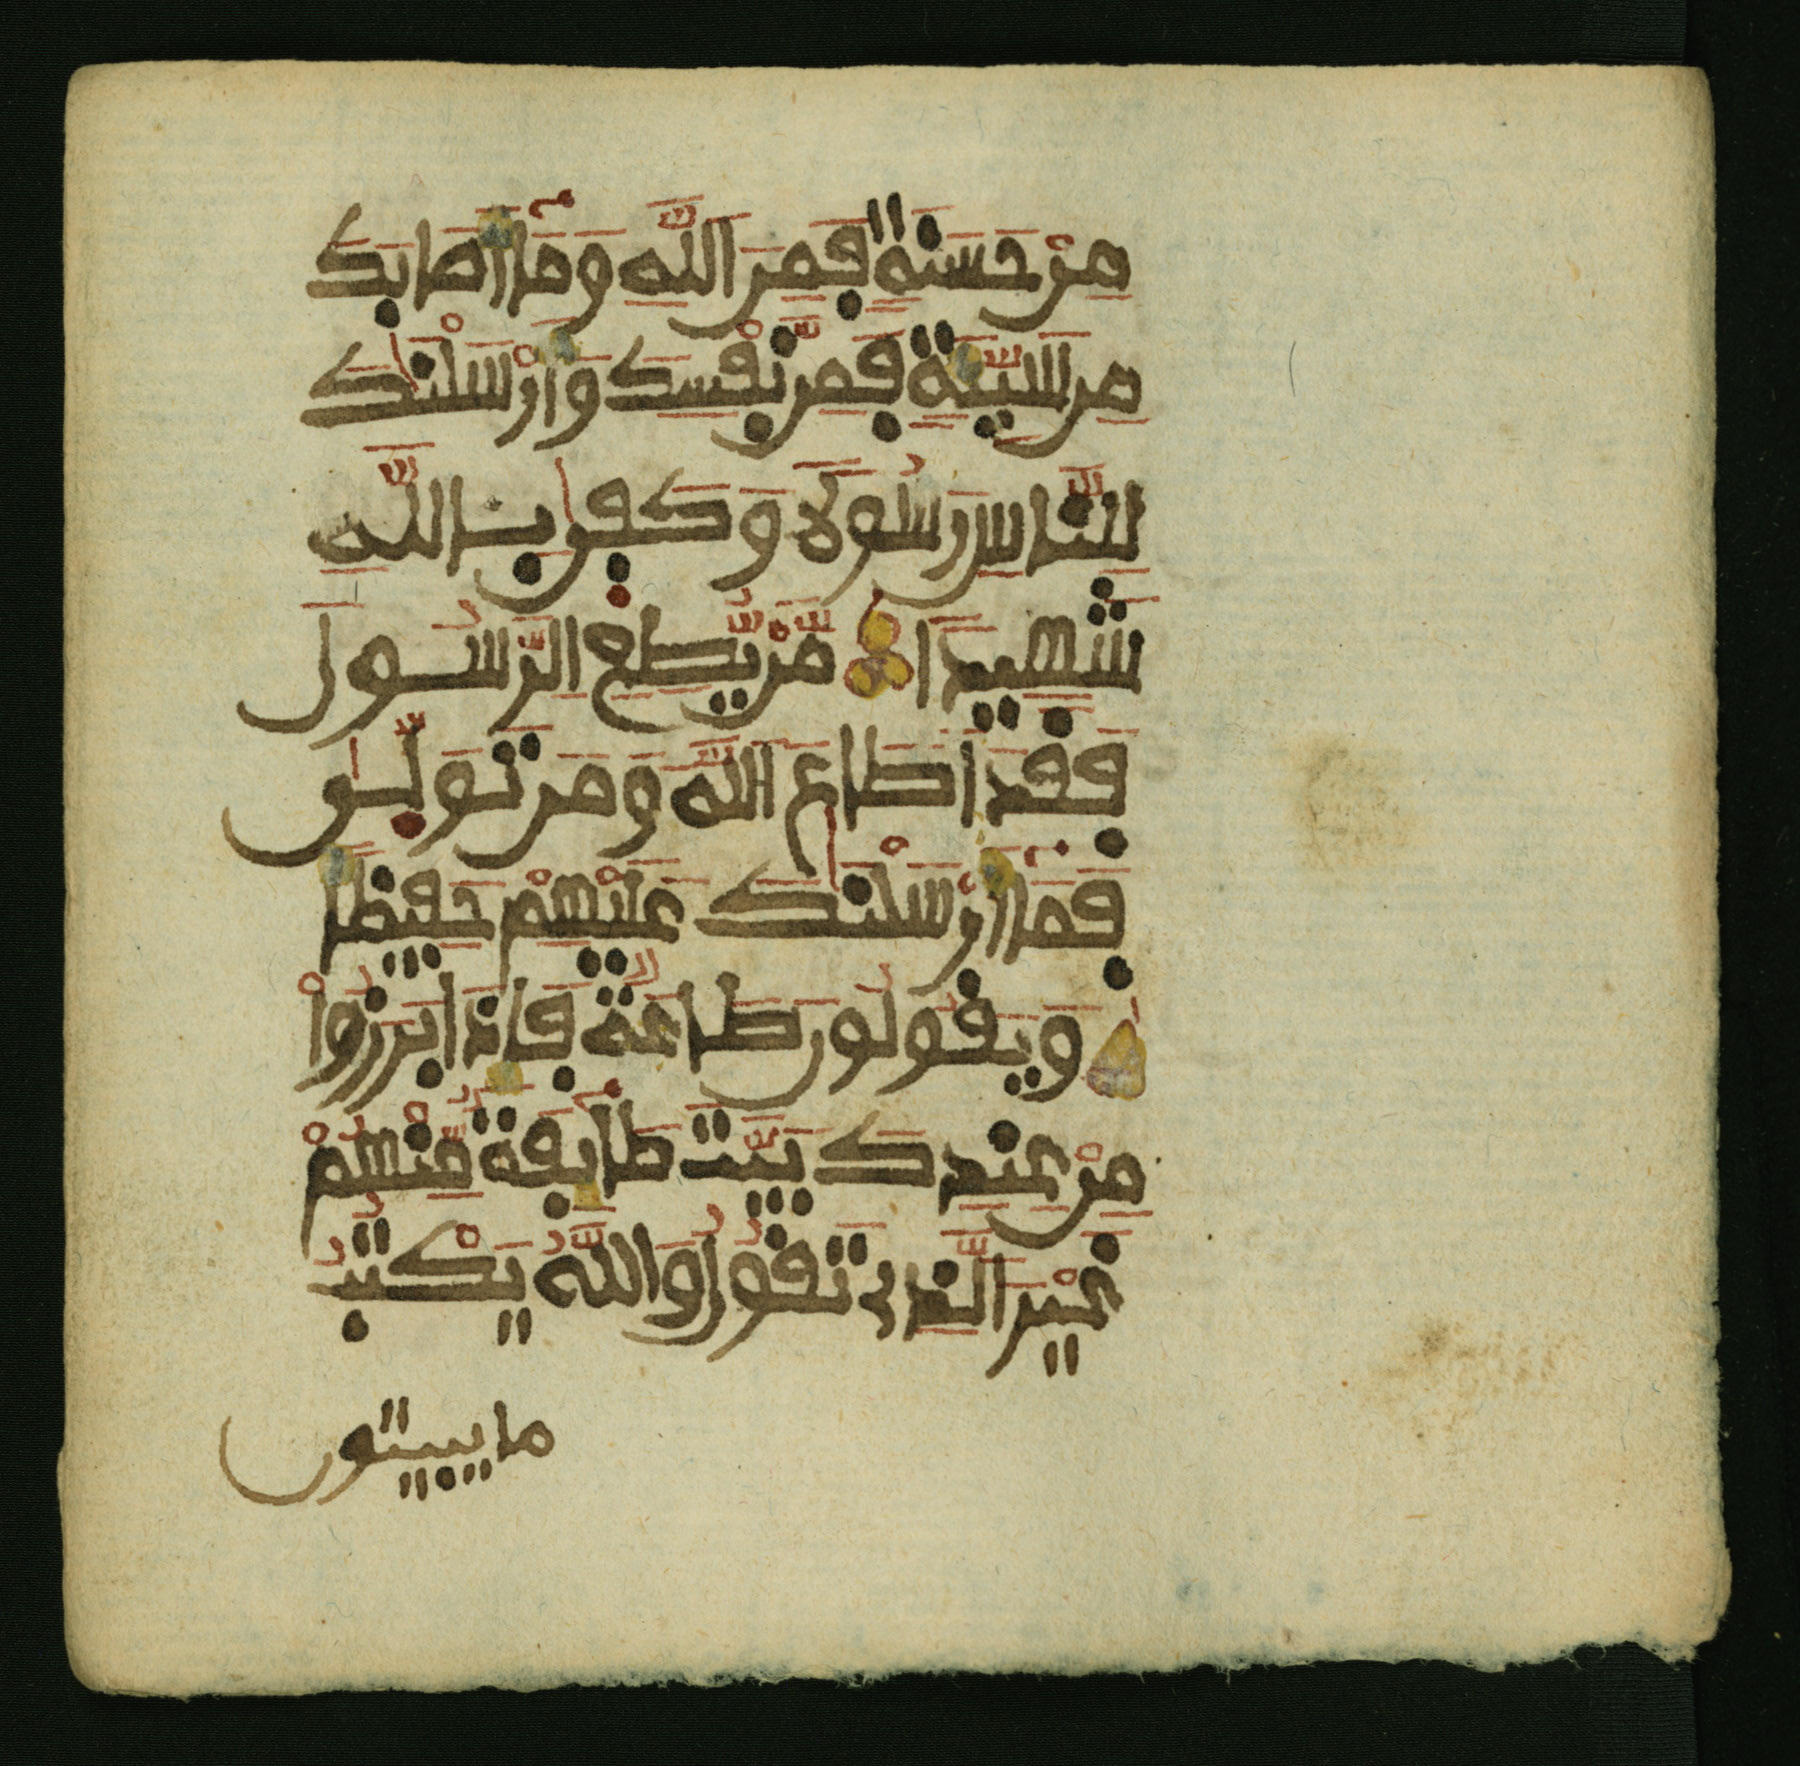 مِنْ حَسَنَةٍ فَمِنَ اللَّهِ وَمَا أَصَابَكَ
مِن سَيِّئَةٍ فَمِن نَّفْسِكَ وَأَرْسَلْنَٰكَ
لِلنَّاسِ رَسُولًا وَكَفَىٰ بِاللَّهِ
شَهِيدًا مَّنْ يُّطِعِ الرَّسُولَ
فَقَدْ أَطَاعَ اللَّهَ وَمَن تَوَلَّىٰ
فَمَا أَرْسَلْنَٰكَ عَلَيْهِمْ حَفِيظًا
وَيَقُولُونَ طَاعَةٌ فَإِذَا بَرَزُوا۟
مِنْ عِندِكَ بَيَّتَ طَائِفَةٌ مِّنْهُمْ
غَيْرَ الَّذِي تَقُولُ وَاللَّهُ يَكْتُبُ
ما يبيتون